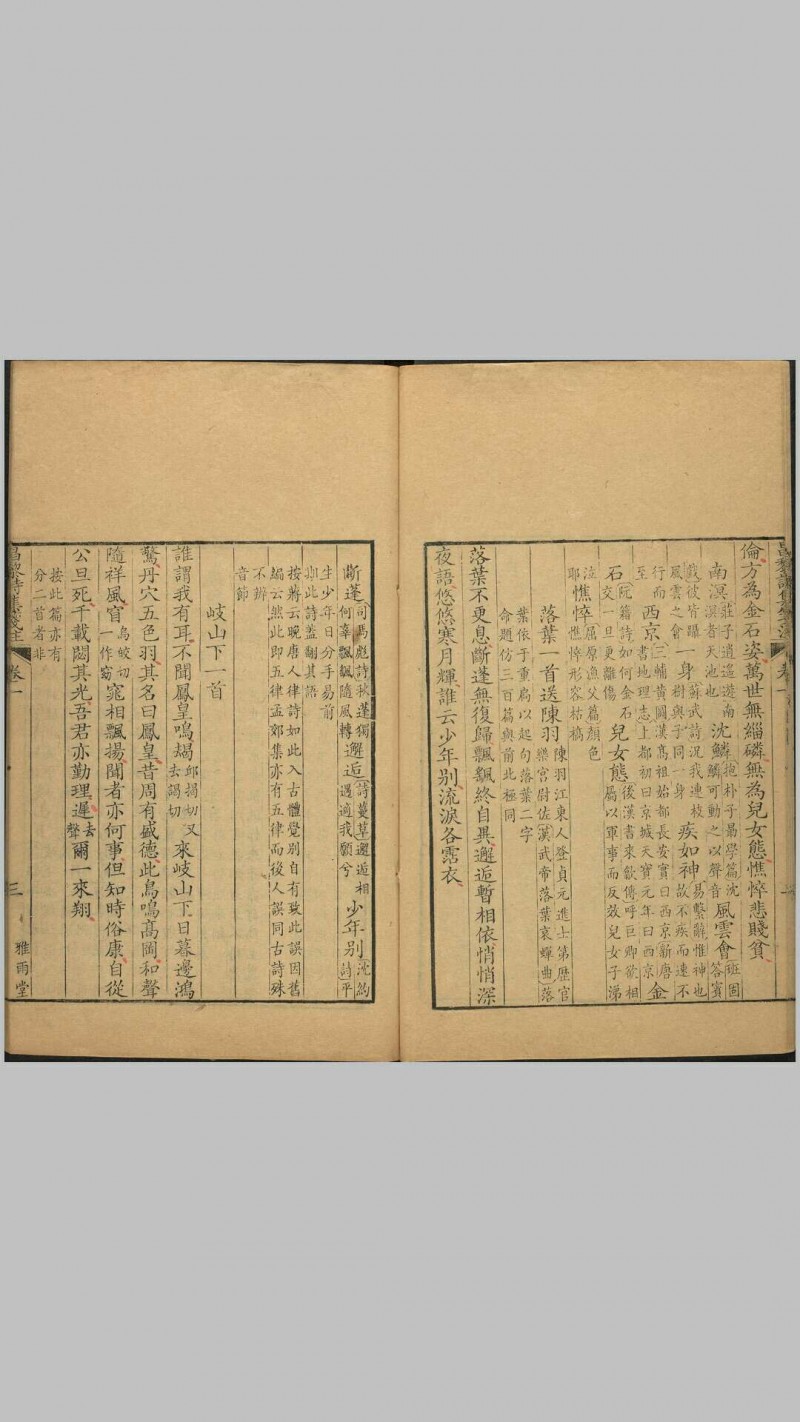 倫方為金石姿萬世無緇磷無為兒女態憔悴悲賤貧
南溟莊子逍遙遊南溟者天池也沈鱗抱朴子勗學篇沈鱗可動之以聲音風雲會班固答賓
戲彼皆躡風雲之會一身蘇武詩況我連枝樹與子同一身疾如神易繫辭惟神也故不疾而速不
行而至西京三輔黃圖漢高祖始都長安實曰西京新唐書地理志上都初曰京城天寶元年曰西京金
石阮籍詩如何金石交一旦更離傷兒女態後漢書來歙傳呼巨卿欲相屬以軍事而反效兒女子涕
泣耶憔悴屈原漁父篇顏色憔悴形容枯槁
落葉一首送陳羽陳羽江東人登貞元進士第歷官樂宮尉佐漢武帝落葉哀蟬曲落
葉依于重扃以起句落葉二字命題仿三百篇與前此極同
落葉不更息斷蓬無復歸飄飄終自異邂逅暫相依悄悄深
夜語悠悠寒月輝誰云少年別流淚各霑衣
斷蓬司馬彪詩秋蓬獨何辜飄飄隨風轉邂逅詩蔓草邂逅相遇適我願兮少年別沈約詩平
生少年日分手易前期此詩蓋翻其語
按蔣云晚唐人律詩如此入古體覺別自有致此誤因舊編云然此即五律孟郊集亦有五律而後人誤同古詩殊
不辨音節
岐山下一首
誰謂我有耳不聞鳳皇鳴朅邱揭切又去謁切來岐山下日暮邊鴻
驚丹穴五色羽其名曰鳳皇昔周有盛德此鳥鳴高岡和聲
隨祥風窅烏皎切一作窈窕相飄揚聞者亦何事但知時俗康自從
公旦死千載閟其光吾君亦勤理遲去聲爾一來翔
按此篇亦有分二首者非
卷一
三
雅雨堂